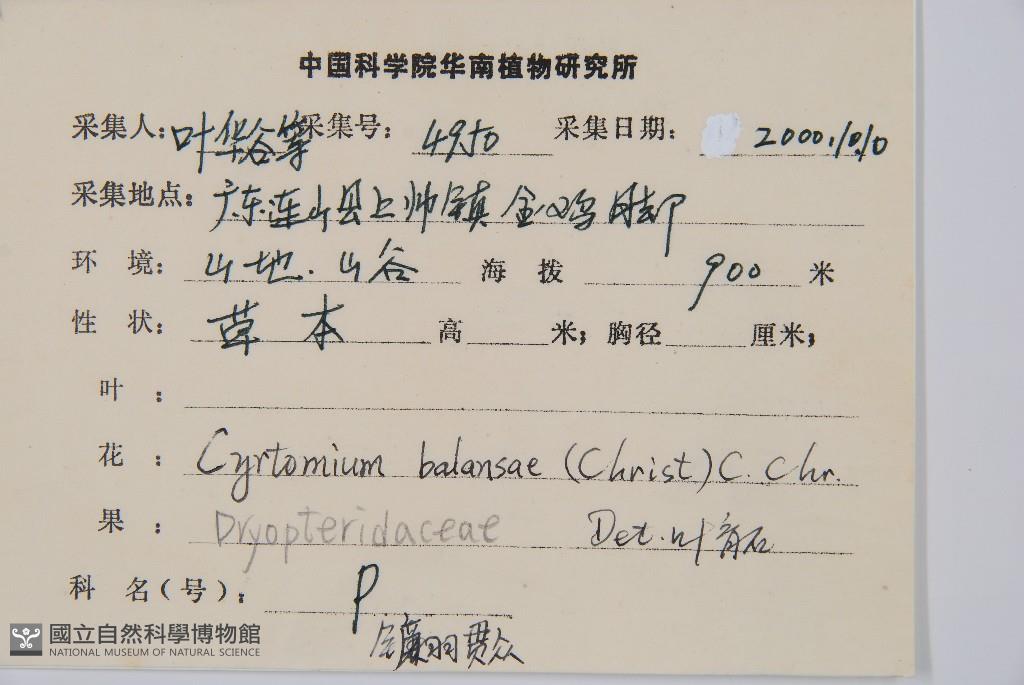 中国科学院华南植物研究所
采集人: 叶华谷等 采集号: 4950 采集日期: 2000.10.10
采集地点: 广东连山县上帅镇金鸡脚
环 境: 山地.山谷 海 拨 900 米
性 状: 草本 高 米; 胸径 厘米;
叶 :
花 : Cyrtomium balansae (Christ) C. Chr.
果 : Dryopteridaceae Det. 叶育石
科 名(号): P
镰羽贯众
國立自然科學博物館
NATIONAL MUSEUM OF NATURAL SCIENCE